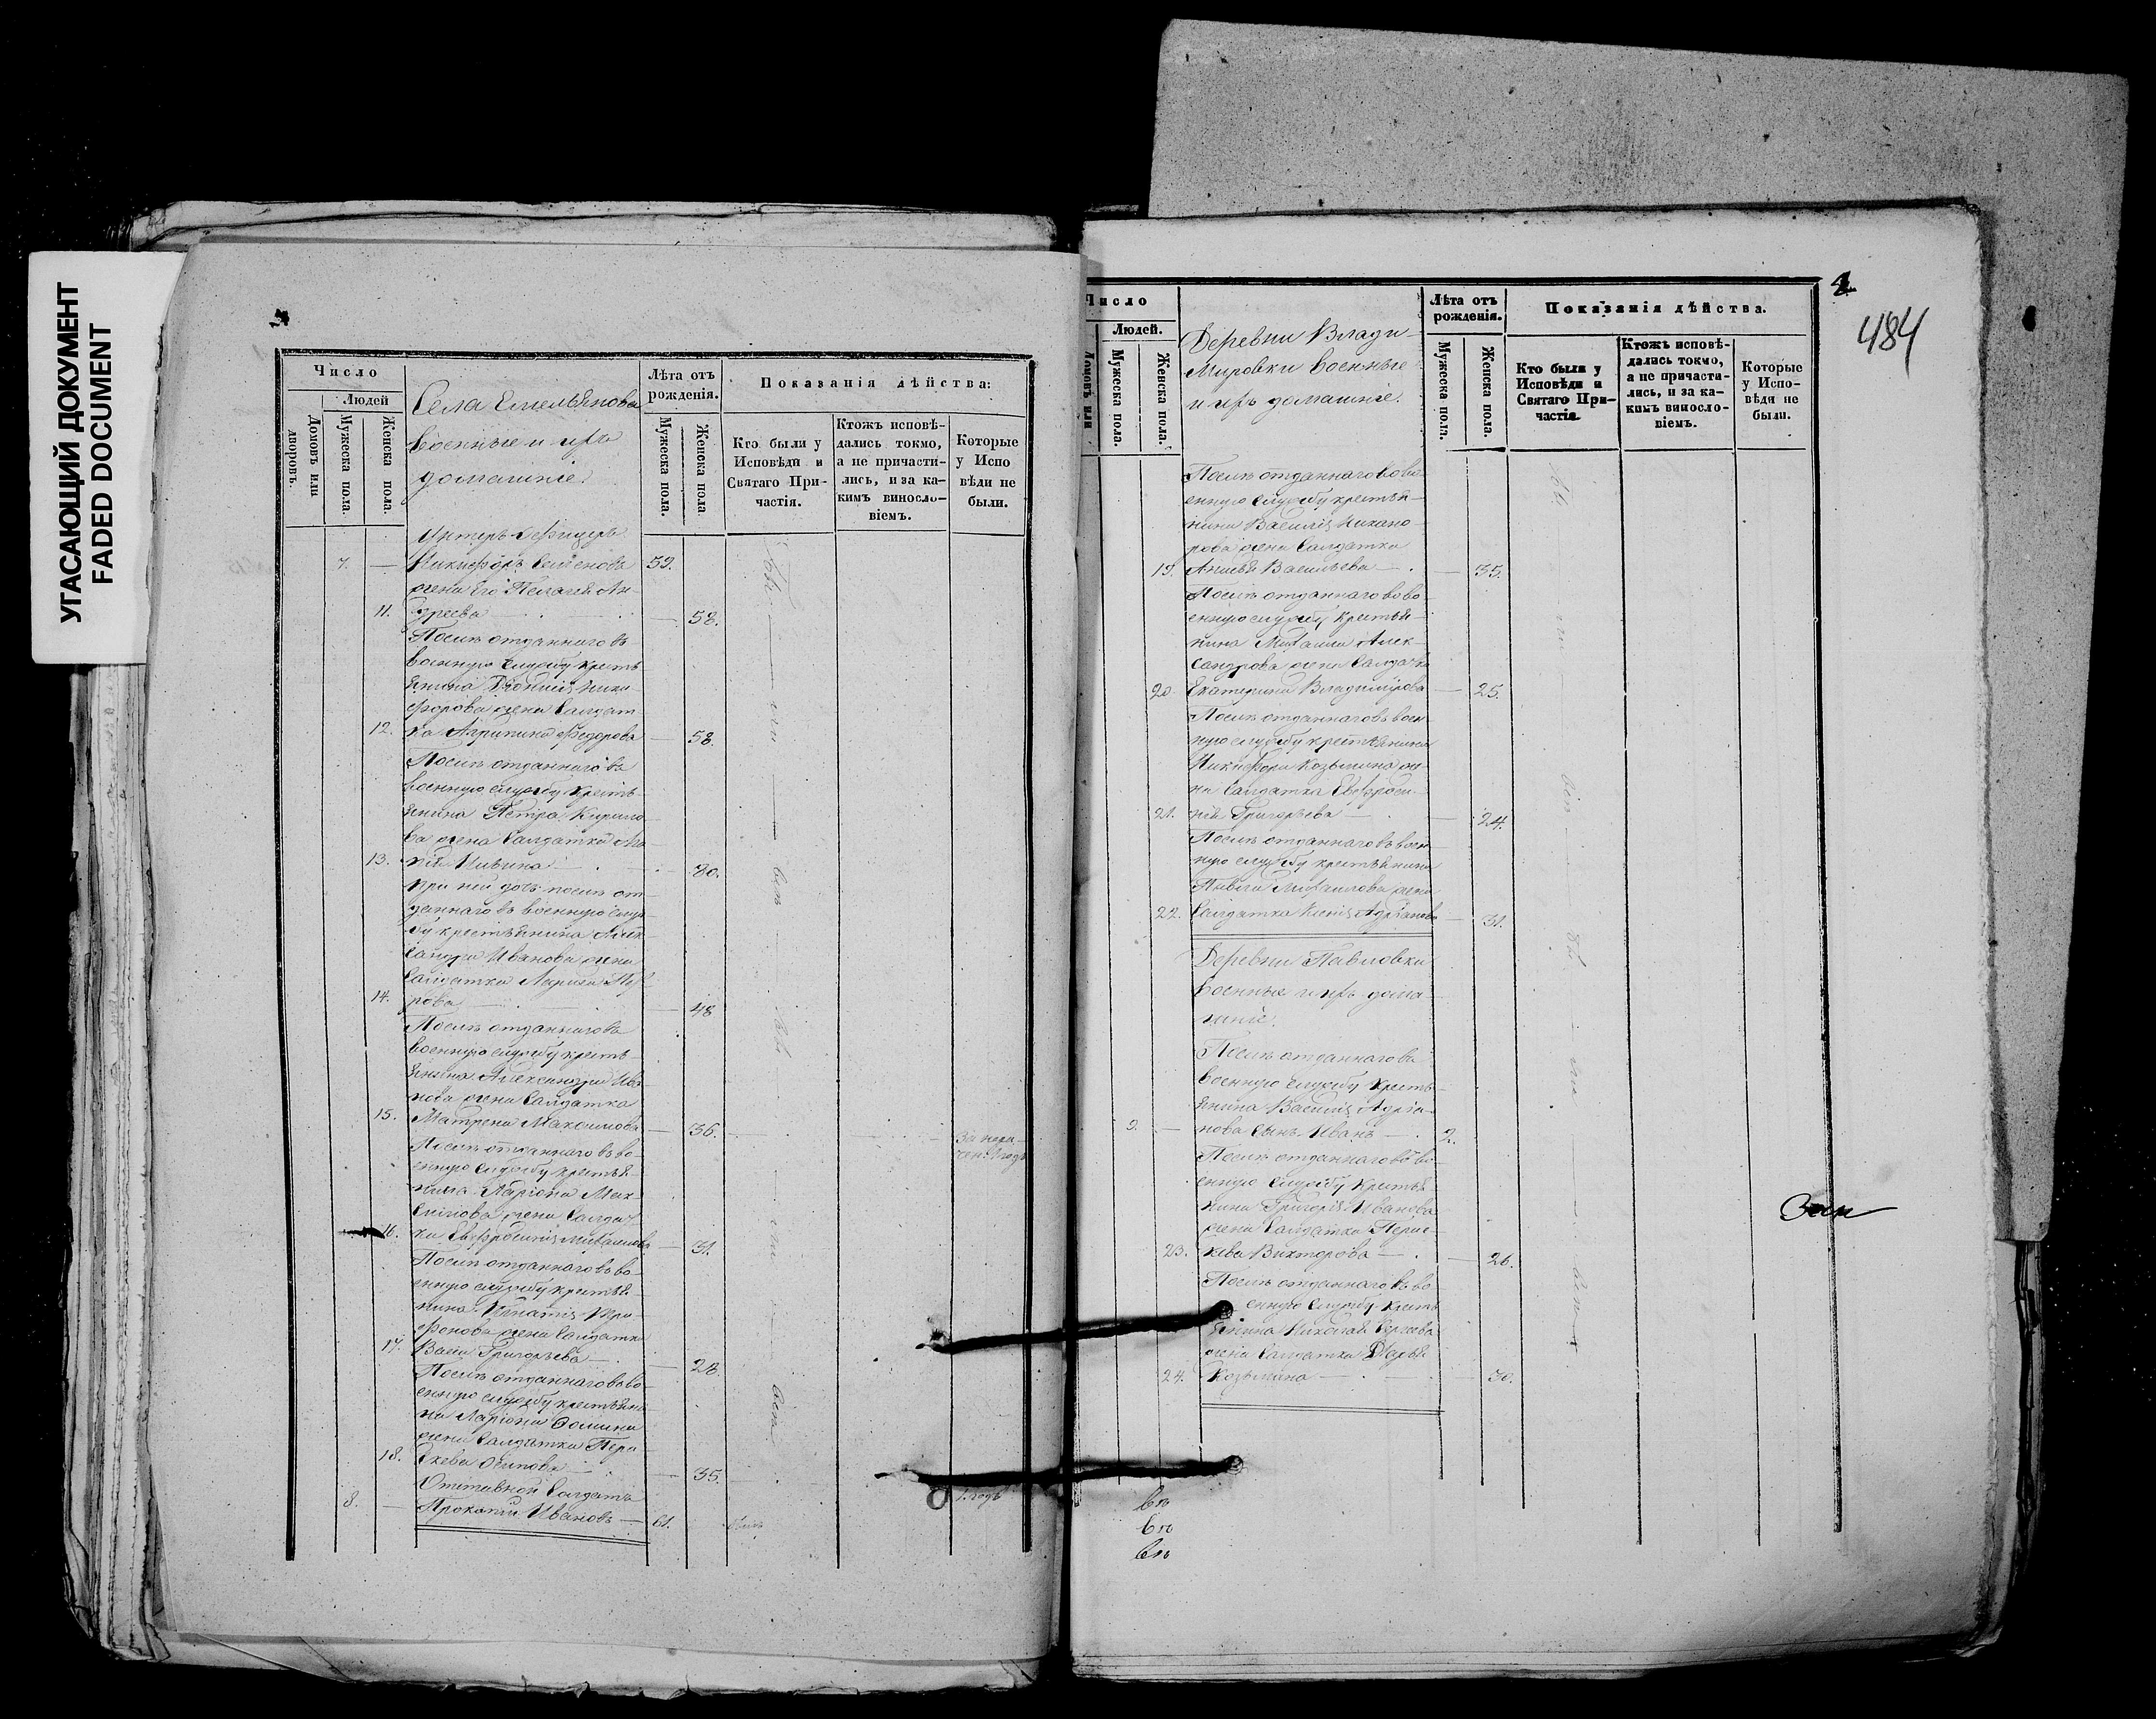 УГАСАЮЩИЙ ДОКУМЕНТ
FADED DOCUMENT
Число
Людей
Домовъ или дворовъ.
Мужеска пола.
Женска пола.
Села Емельянова
военные и ихъ
домашніе.
Лѣта отъ
рожденія.
Мужеска пола.
Женска пола
Показанія дѣйства:
Кто были у
Исповѣди и
Святаго При-
частія.
Ктожъ исповѣ-
дались токмо,
а не причасти-
лись, и за ка-
кимъ винослo-
віемъ.
Которые
у Испо
вѣди не
были.
Унтеръ-Офицеръ
7. — Никифоръ Семеновъ 59.
жена его Пелагея Ан-
11. дреева — 58.
Послѣ отданнаго въ
военную службу кресть
янина Діонисія Ники-
форова жена Салдат-
12. ка Агрипина Федорова — 58.
Послѣ отданнаго въ
военную службу кресть-
янина Петра Кирило
ва жена Салдатка
13. Ильина — 80.
при ней дочь послѣ от
даннаго въ военную служ
бу крестьянина Алек
сандра Иванова жена
Салдатка
14. рова — 48
Послѣ отданнаго въ
военную службу кресть-
янина Александра Ива
нова жена Салдатка
15. Матрена Максимова — 36.
1 годъ
Послѣ отданнаго въ во-
енную службу крестья
нина Ларіона Мак-
симова жена Салдат
16. ка Евфросинія Михайлова — 31.
Послѣ отданнаго въ во-
енную службу крестья
нина Игнатія Три
фонова жена Салдатка
17. Васса Григорьева — 28.
Послѣ отданнаго въ во-
енную службу крестьяни
на Ларіона Фомина
жена Салдатка Пара
18. скева Осипова — 35.
Отставной Салдатъ
8. — Прокопій Ивановъ — 61.
1 годъ
484
Число
Людей.
Домовъ или
Мужеска пола.
Женска пола.
Деревни Влади-
мировки военные
и ихъ домашніе.
Лѣта отъ
рожденія.
Мужеска пола.
Женска пола.
Показанія дѣйства.
Кто были у
Исповѣди и
Святаго При-
частія
Ктожъ исповѣ-
дались токмо,
а не причасти-
лись, и за ка-
кимъ винослo-
віемъ.
Которые
у Испо-
вѣди не
были.
Послѣ отданнаго въ во
енную службу крестья-
нина Василія Никано-
рова жена Салдатка
19. Анисья Васильева — 35.
Послѣ отданнаго въ во-
енную службу крестья-
нина Михаила Алек-
сандрова жена Салдатка
20. Екатерина Владимірова — 25.
Послѣ отданнаго въ воен-
ную службу крестьянина
Никифора Козьмина же-
на Салдатка Евфроси-
21. нія Григорьева — 24.
Послѣ отданнаго въ воен-
ную службу крестьянина
Павла Михайлова жена
22. Салдатка Ксенія Адріанова — 31.
Деревни Павловки
военные и ихъ дома-
шніе.
Послѣ отданнаго въ
военную службу кресть-
янина Василія Адріа-
9. — нова сынъ Иванъ — 2.
Послѣ отданнаго въ во-
енную службу крестья
нина Григорія Иванова
жена Салдатка Парас-
23. кева Викторова — 26.
Послѣ отданнаго въ во-
енную службу кресть
янина Николая Сергеева
жена Салдатка Дарья
24. Козьмина — 30.